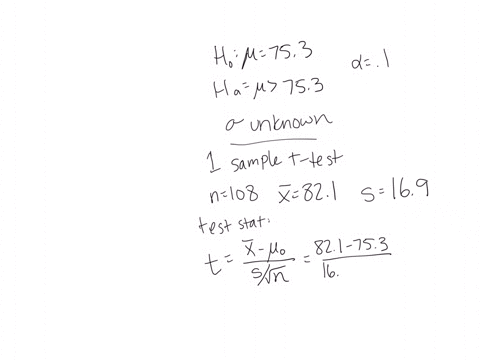 H₀: μ = 75.3 α = .1
Ha = μ > 75.3
σ unknown
1 sample t-test
n = 108 x̄ = 82.1 s = 16.9
test stat:
t = x̄ - μ₀ / s/√n = 82.1 - 75.3 / 16.